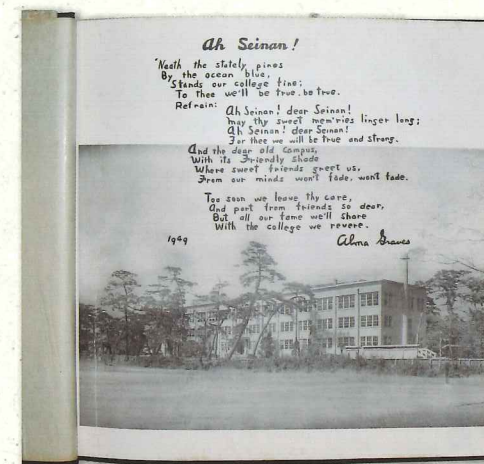 Ah Seinan!
'Neath the stately pines
By the ocean blue,
Stands our college fine;
To thee we'll be true, be true.
Refrain:
Ah Seinan! dear Seinan!
May thy sweet mem'ries linger long;
Ah Seinan! dear Seinan!
For thee we will be true and strong.
And the dear old campus,
With its Friendly shade
Where sweet friends greet us,
From our minds won't fade, won't fade.
Too soon we leave thy care,
And part from friends so dear,
But all our fame we'll share
With the college we revere.
1949
Alma Graves